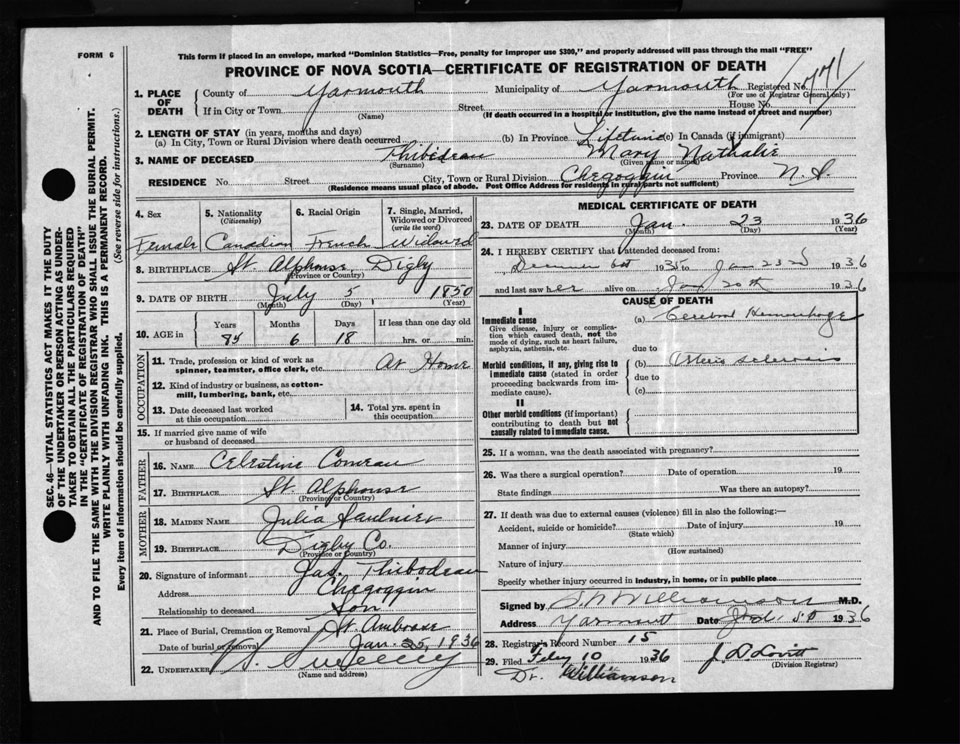 FORM 6
This form if placed in an envelope, marked "Dominion Statistics—Free, penalty for improper use $300," and properly addressed will pass through the mail "FREE"
PROVINCE OF NOVA SCOTIA—CERTIFICATE OF REGISTRATION OF DEATH
1. PLACE OF DEATH County of Yarmouth (Name) Municipality of Yarmouth Registered No. 771 (For use of Registrar General only)
If in City or Town Street House No.
(If death occurred in a hospital or institution, give the name instead of street and number)
2. LENGTH OF STAY (in years, months and days)
(a) In City, Town or Rural Division where death occurred (b) In Province Lifetime (c) In Canada (if immigrant)
3. NAME OF DECEASED Thibedeau (Surname) Mary Nathalie (Given name or names)
RESIDENCE No. Street City, Town or Rural Division Chegoggin Province N. S.
(Residence means usual place of abode. Post Office Address for residents in rural parts not sufficient)
4. Sex 5. Nationality (Citizenship) 6. Racial Origin 7. Single, Married, Widowed or Divorced (write the word)
Female Canadian French Widowed
8. BIRTHPLACE St. Alphonse Digby
(Province or Country)
9. DATE OF BIRTH July 5 1850
(Month) (Day) (Year)
10. AGE in Years Months Days If less than one day old
85 6 18 hrs. or min.
OCCUPATION
11. Trade, profession or kind of work as spinner, teamster, office clerk, etc. At Home
12. Kind of industry or business, as cotton-mill, lumbering, bank, etc.
13. Date deceased last worked at this occupation
14. Total yrs. spent in this occupation
15. If married give name of wife or husband of deceased
FATHER
16. NAME Celestine Comeau
17. BIRTHPLACE St. Alphonse
(Province or Country)
MOTHER
18. MAIDEN NAME Julia Saulnier
19. BIRTHPLACE Digby Co.
(Province or Country)
20. Signature of informant Jas. Thibodeau
Address Chegoggin
Relationship to deceased Son
21. Place of Burial, Cremation or Removal St. Ambrose
Date of burial or removal Jan. 25, 1936
22. UNDERTAKER V. S. Sweeney
(Name and address)
MEDICAL CERTIFICATE OF DEATH
23. DATE OF DEATH Jan. 23 1936
(Month) (Day) (Year)
24. I HEREBY CERTIFY that I attended deceased from:
1935 to Jan 23rd 1936
and last saw her alive on Jan 20th 1936
CAUSE OF DEATH
I
Immediate cause (a) Cerebral Hemorrhage
Give disease, injury or complication which caused death, not the mode of dying, such as heart failure, asphyxia, asthenia, etc.
due to
Morbid conditions, if any, giving rise to immediate cause (stated in order proceeding backwards from immediate cause). (b) Arterio sclerosis
due to
(c)
II
Other morbid conditions (if important) contributing to death but not causally related to immediate cause.
25. If a woman, was the death associated with pregnancy?
26. Was there a surgical operation? Date of operation 19
State findings Was there an autopsy?
27. If death was due to external causes (violence) fill in also the following:—
Accident, suicide or homicide? Date of injury 19
(State which)
Manner of injury
(How sustained)
Nature of injury
Specify whether injury occurred in industry, in home, or in public place
Signed by Williamson M.D.
Address Yarmouth Date 1936
28. Registrar's Record Number 15
29. Filed Feby 10 1936 J. D. Lovitt
(Division Registrar)
Dr. Williamson
SEC. 46—VITAL STATISTICS ACT MAKES IT THE DUTY
OF THE UNDERTAKER OR PERSON ACTING AS UNDER-
TAKER TO OBTAIN ALL THE PARTICULARS REQUIRED
IN THE "CERTIFICATE OF REGISTRATION OF DEATH"
AND TO FILE THE SAME WITH THE DIVISION REGISTRAR WHO SHALL ISSUE THE BURIAL PERMIT.
WRITE PLAINLY WITH UNFADING INK. THIS IS A PERMANENT RECORD.
Every item of information should be carefully supplied. (See reverse side for instructions.)